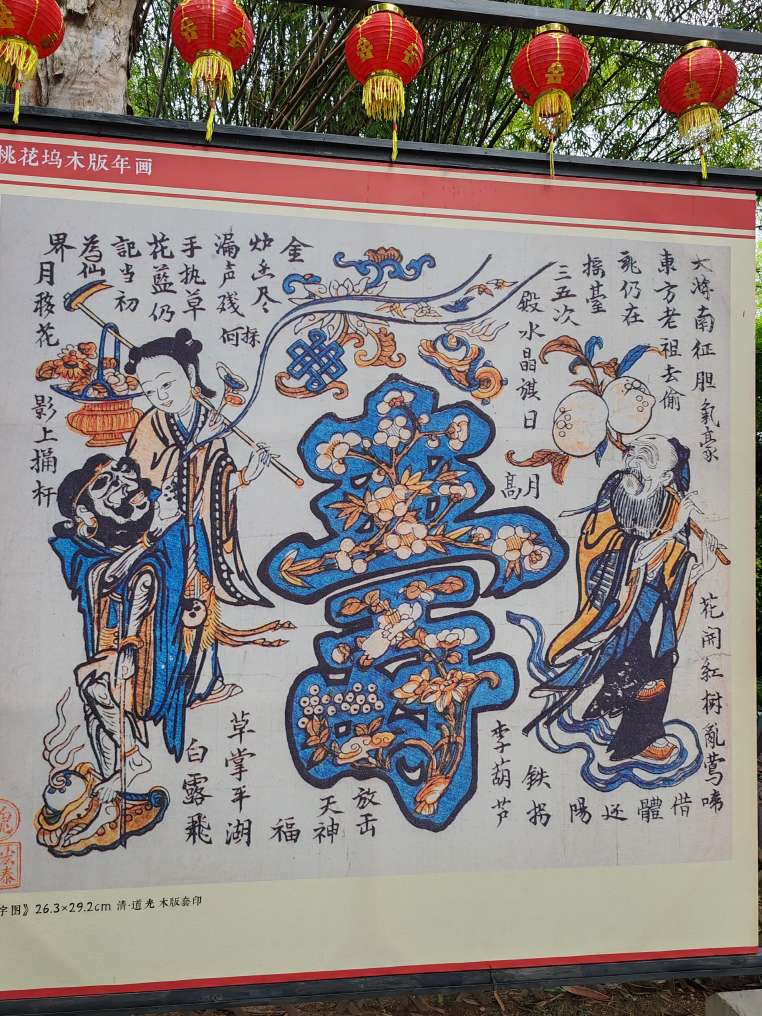 桃花坞木版年画
大將南征胆氣豪
東方老祖去偷
死仍在
摇臺
三五次
殿水晶谋日
高月
金
炉尽
漏声残
何採
手执草
花藍仍
記当初
為仙
界月移花
影上捅杆
壽
花開紅樹亂鶯啼
借體还陽
鉄拐
李葫芦
放击
天神
福
草掌平湖
白露飛
字图》26.3×29.2cm 清·道光 木版套印